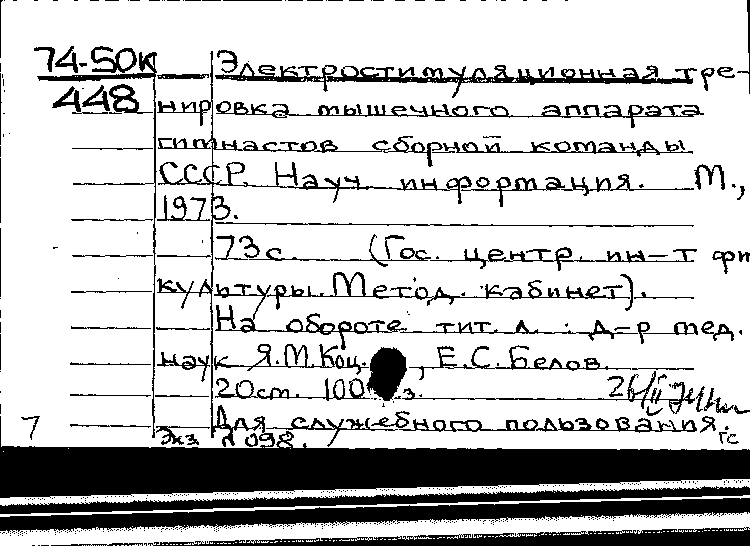 74-50к Электростимуляционная тре-
448 нировка мышечного аппарата
гимнастов сборной команды
СССР. Науч. информация. М.,
1973.
73с. (Гос. центр. ин-т физ
культуры. Метод. кабинет).
На обороте тит. л. : д-р мед.
наук Я.М.Коц. , Е.С.Белов.
20см. 100 з.
26/II
7 Для служебного пользования.
Экз N 098. ГС